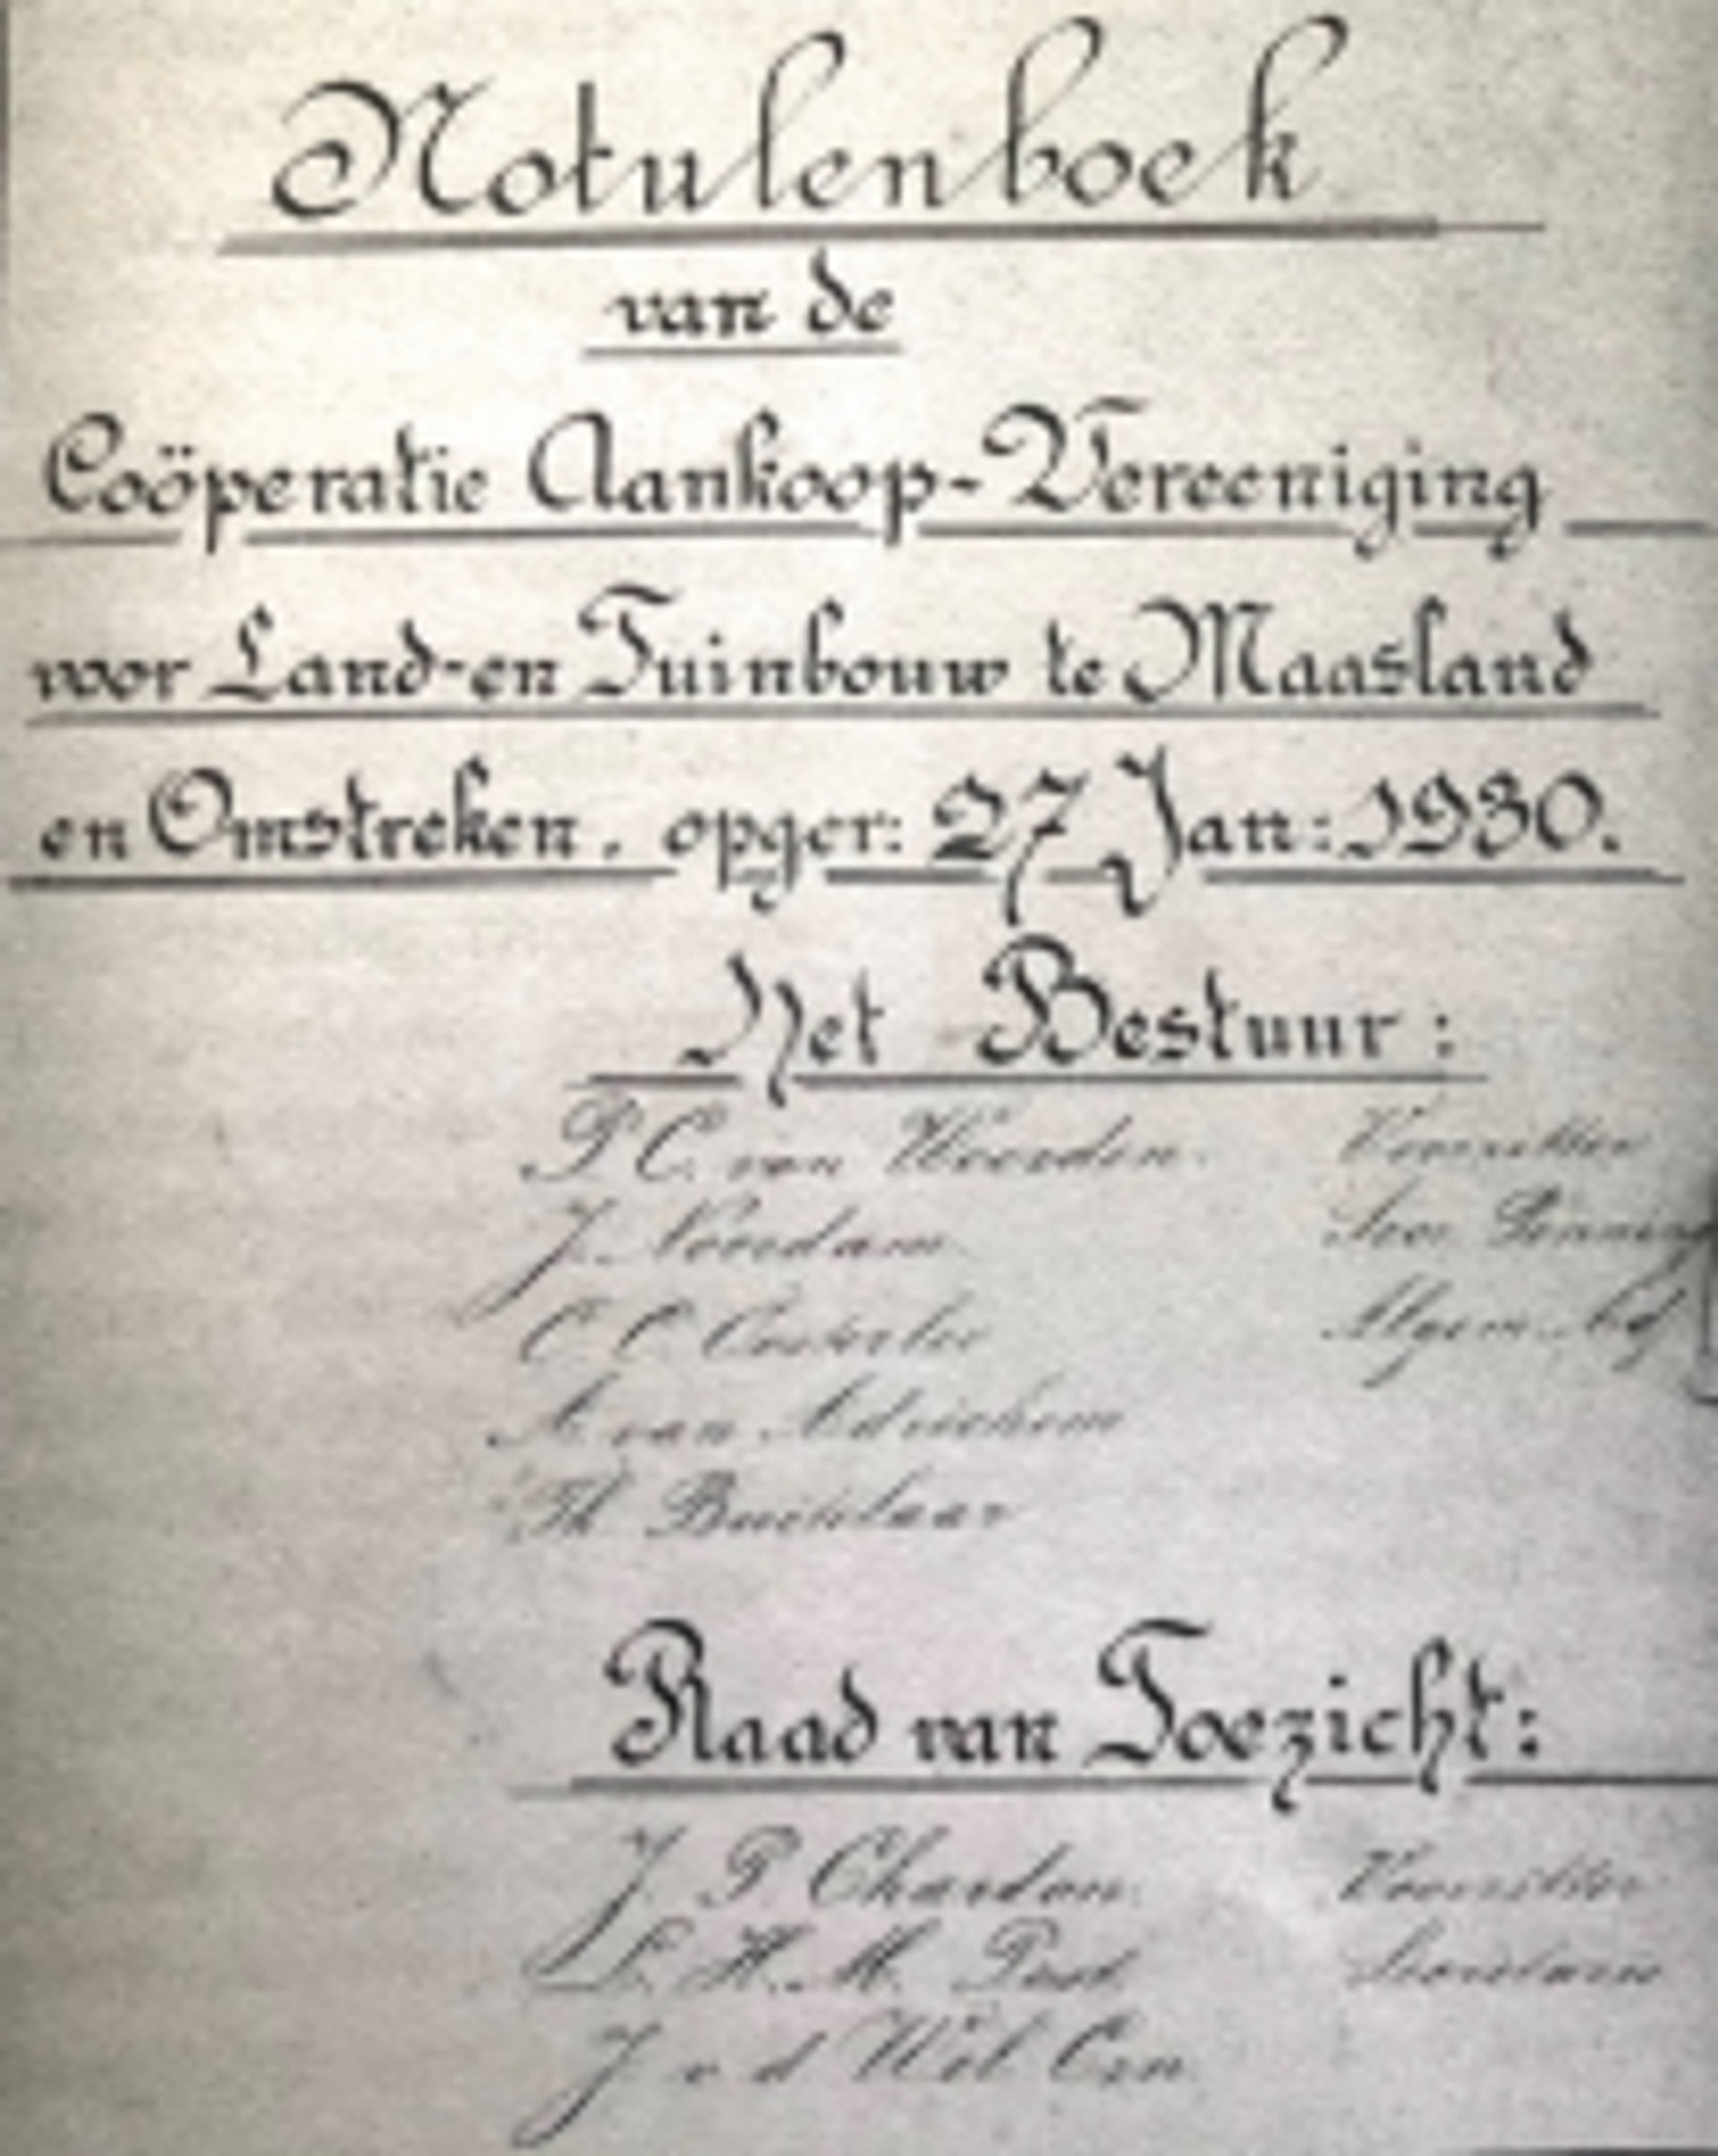 Notulenboek
van de
Coöperatie Aankoop-Vereeniging
voor Land-en Tuinbouw te Maasland
en Omstreken. opger: 27 Jan: 1930.
Het Bestuur:
P. C. van Woerden. Voorzitter
J. Noordam
C. C.
A. van Adrichem
Th. Buitelaar
Raad van Toezicht:
J. P. Chardon. Voorzitter
L. H. M. Post. Secretaris
J. v d Wel Czn.